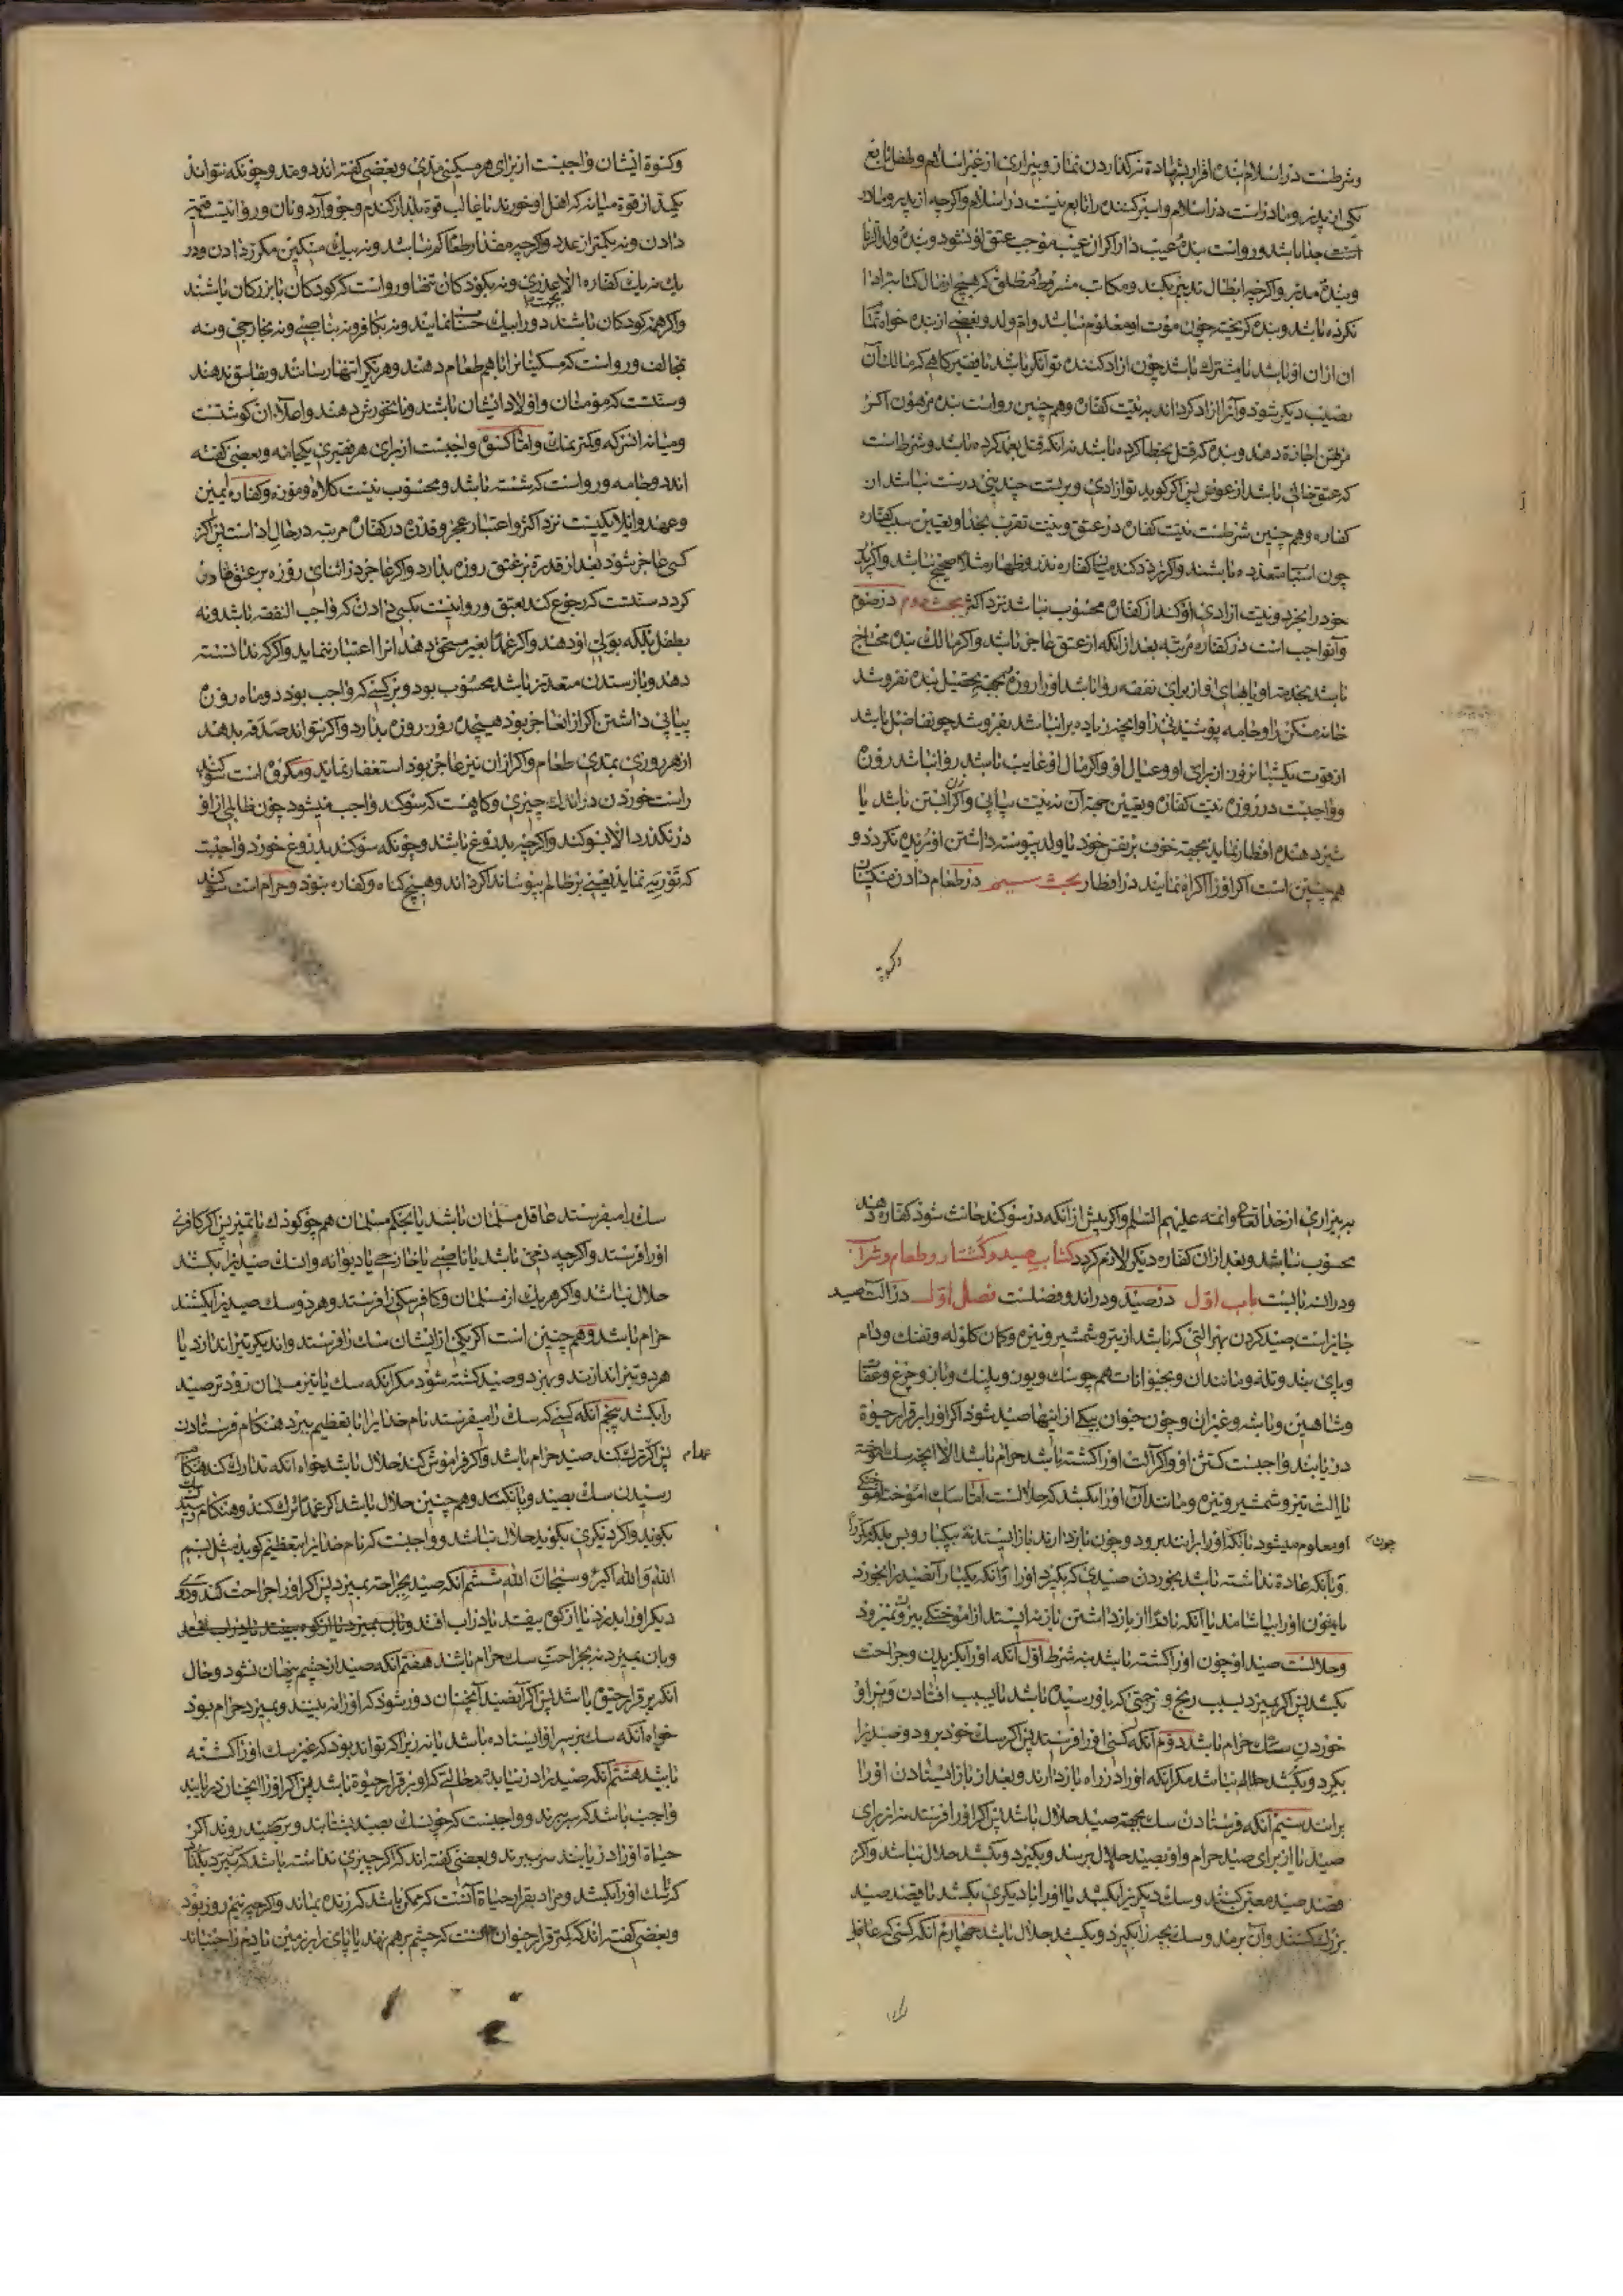 وشرطست در اسلام بنده اقرار بشهادة نه گذاردن نماز و بیزاری از غیر اسلام و طفل تابع
یکی از پدر و مادر است در اسلام و اسیر کننده را تابع نیست در اسلام و اگرچه از پدر و مادر
جدا باشد و رواست بنده عیب دار اگر آن عیب موجب عتق او نشود و بنده ولد الزنا
و بنده مدبر و اگرچه ابطال تدبیر نکند و مکاتب مشروط و مطلق که هیچ از مال کتابة ادا
نکرده باشد و بنده گریخته چون موت او معلوم نباشد و ام ولد و بعضی از بنده خواه تمام
آن ازان او باشد یا مشترک باشد چون ازاد کننده توانگر باشد یا فقیر کاهی که مالک آن
نصیب دیگر شود و آنرا ازاد گرداند به نیت کفاره و هم چنین رواست بنده مرهون اگر
مرتهن اجازة دهد و بنده که قتل بخطا کرده باشد نه آنکه قتل بعمد کرده باشد و شرط است
که عتق خالی باشد از عوض پس اگر گوید تو ازادی و بر تست چندینی درست نباشد از
کفاره و هم چنین شرطست نیت کفاره در عتق و نیت تقرب بخدا و تعیین سبب کفاره
چون اسباب متعدده باشند و اگر تردد کند میان کفاره نذر و ظهار مثلا صحیح نباشد و اگر پدر
خود را بخرد و نیت ازادی او کند از کفاره محسوب نباشد نزد اکثر بحث دوم در صوم
و آن واجب است در کفاره مرتبه بعد از آنکه از عتق عاجز باشد و اگر مالک بنده محتاج
باشد بخدمة او یا بهای او از برای نفقه روا باشد او را روزه بجهة تحصیل بنده نفروشد
خانه مسکن را و جامه پوشیدنی را و آنچه زیاده بر آن باشد بفروشد چو فاضل باشد
از قوت یکشبانروز از برای او و عیال او و اگر مال او غایب باشد روا نباشد روزه
و واجبست در روزه نیت کفاره و تعیین جهة آن نه نیت پیاپی و اگر زن آبستن باشد یا
شیر دهنده افطار نماید بجهة خوف بر نفس خود یا ولد پیوسته داشتن او بریده نگردد و
هم چنین است اگر او را اکراه نمایند در افطار بحث سیم در طعام دادن مسکینان
وکسوة
وکسوة ایشان واجبست از برای هر مسکینی مدّی و بعضی گفته اند دو مد و چونکه نتواند
یک مد از قوة میانه که اهل او خورند یا غالب قوة بلد از گندم و جو و آرد و نان و روا نیست قیمة
دادن و نه بکمتر از عدد و اگرچه مقدار طعام کم نباشد و نه بیک مسکین مکرر دادن و در
یک نه یک کفاره الا بعذری و نه بکودکان تنها و رواست که کودکان با بزرگان باشند
بجهت
و اگر همه کودکان باشند دو را بیک حساب نمایند و نه بکافر و نه بناصبی و نه بخارجی و نه
بمخالف و رواست که مسکینانرا با هم طعام دهند و هر یکرا تنها رسانند و بفاسق ندهند
و سنتست که مؤمنان و اولاد ایشان باشند و نانخورش دهند و اعلاء آن گوشتست
و میانه انسرکه و کمتر نمک و امّا کسوة واجبست از برای هر فقیری یکجامه و بعضی گفته
اند دو جامه و رواست که شسته باشد و محسوب نیست کلاه و موزه و کفاره یمین
و عهد و ایلا یکیست نزد اکثر و اعتبار عجز و قدرة در کفاره مرتبه در حال ادا است پس اگر
کسی عاجز شود بعد از قدرة بر عتق روزه بدارد و اگر عاجز در اثنای روزه بر عتق قادر
گردد سنتست که رجوع کند بعتق و روا نیست بکسی دادن که واجب النفقه باشد و نه
بطفل بلکه بولی او دهند و اگر عمدا بغیر مستحق دهد انرا اعتبار ننماید و اگر نه ندانسته
دهد و باز ستدن متعذر باشد محسوب بود و بر کسی که واجب بود دو ماه روزه
پیاپی داشتن اگر از ان عاجز بود هیجده روز روزه بدارد و اگر نتواند صدقه بدهد
از هر روزی بمدی طعام و اگر از ان نیز عاجز بود استغفار نماید و مکروه است سوگند
راست خوردن در اندک چیزی و گاهست که سوگند واجب میشود چون ظالمی از او
در نگذرد الا بسوگند و اگرچه بدروغ باشد و چونکه سوگند بدروغ خورد واجبست
که توریه نماید یعنی بر ظالم بپوشاند اگر داند و هیچ گناه و کفاره نبود و حرام است سوگند
به بیزاری از خدا تعالی و ائمه علیهم السلم و اگر پیش از آنکه در سوگند حانث شود کفاره دهد
محسوب نباشد و بعد ازان کفاره دیگر لازم گردد کتاب صید و کشتار و طعام و شراب
ودرانه بابست باب اوّل در صید و در او دو فصلست فصل اوّل در آلت صید
جایز است صید کردن بهر آلتی که باشد از تیر و شمشیر و نیزه و کمان گلوله و تفنک و دام
و پای بند و تله و مانند آن و بحیوانات هم چو سک و یوز و پلنک و باز و چرغ و عقاب
و شاهین و باشه و غیر آن و چون حیوان بیکی از اینها صید شود اگر او را برقرار حیوة
دریابند واجبست کشتن او و اگر آلت او را کشته باشد حرام باشد الا آنچه سک آموخته
یا آلت تیز و شمشیر و نیزه و مانند آن او را بکشد که حلالست امّا سک آموخته آموختکی
چون
او معلوم میشود بآنکه او را برانند برود و چون باز دارند باز ایستد نه بیکبار و بس بلکه مکررا
و بآنکه عادة نداشته باشد بخوردن صیدی که بگیرد او را و آنکه یکبار آنصید را بخورد
یا خون او را بیاشامد یا آنکه نادرا از باز داشتن باز نه ایستد از آموختکی بیرون نمیرود
و حلالست صید او چون او را کشته باشد بنه شرط اوّل آنکه او را بگزیدن و جراحت
بکشد پس اگر بمیرد بسبب رنج و زحمتی که باو رسیده باشد یا بسبب افتادن و بر او
خوردن سک حرام باشد دوّم آنکه کسی او را فرستد پس اگر سک خود برود و صید را
بگیرد و بکشد حلال نباشد مگر آنکه او را در راه باز دارند و بعد از باز ایستادن او را
برانند سیم آنکه فرستادن سک بجهة صید حلال باشد پس اگر او را فرستد نه از برای
صید یا از برای صید حرام و او بصید حلال برسد و بگیرد و بکشد حلال نباشد و اگر
قصد صید معین کنند و سک دیگر را بکشد یا او را با دیگری بکشد یا قصد صید
بزرگ کنند و آن برمد و سک بچه را بگیرد و بکشد حلال باشد چهارم آنکه کسی که عاقل
سک را میفرستد عاقل مسلمان باشد یا بحکم مسلمان هم چو کودک با تمیز پس اگر کافری
او را فرستد و اگرچه ذمّی باشد یا ناصبی یا خارجی یا دیوانه و آن سک صید را بکشد
حلال نباشد و اگر هر یک از مسلمان و کافر سکی را فرستد و هر دو سک صید را بکشند
حرام باشد و هم چنین است اگر یکی از ایشان سک را فرستد و اندیکر تیر اندازد یا
هر دو تیر اندازند و بهر دو صید کشته شود مگر آنکه سک یا تیر مسلمان زودتر صید
را بکشد پنجم آنکه کسی که سک را میفرستد نام خدایرا با تعظیم ببرد هنگام فرستادن
عمدا
پس اگر ترک کند صید حرام باشد و اگر فراموش کند حلال باشد خواه آنکه تدارک کند هنگام
رسیدن سک بصید و یا نکند و هم چنین حلال باشد اگر عمدا ترک کند و هنگام رسیدن
بگوید و اگر دیگری بگوید حلال نباشد و واجبست که نام خدایرا بتعظیم گوید مثل بسم
اللّه و اللّه اکبر و سبحان اللّه ششم آنکه صید بجراحة بمیرد پس اگر او را جراحت کند و ددی
دیگر او را بدرد یا از کوه بیفتد یا در اب افتد
وبان بمیرد نه بجراحت سک حرام باشد هفتم آنکه صید از چشم پنهان نشود و حال
آنکه برقرار حیوة باشد پس اگر آنصید آنچنان دور شود که او را نه بیند و بمیرد حرام بود
خواه آنکه سک بر سر او ایستاده باشد یا نه زیرا که تواند بود که غیر سک او را کشته
باشد هشتم آنکه صید را در نیابد بحالتی که او برقرار حیوة باشد پس اگر او را آنچنان دریابد
واجب باشد که سر ببرند و واجبست که چون سک بصید بشتابد و بر صید روند اگر
حیاة او را دریابند سر ببرند و بعضی گفته اند که اگر چیزی نداشته باشد که سر ببرد بگذارد
که سک او را بکشد و مراد بقرار حیاة آنست که ممکن باشد که زنده بماند و اگرچه نیم روز بود
و بعضی گفته اند که کمتر قرار حیوان آنست که چشم بر هم نهد یا پای را بر زمین یا دم را جنباند